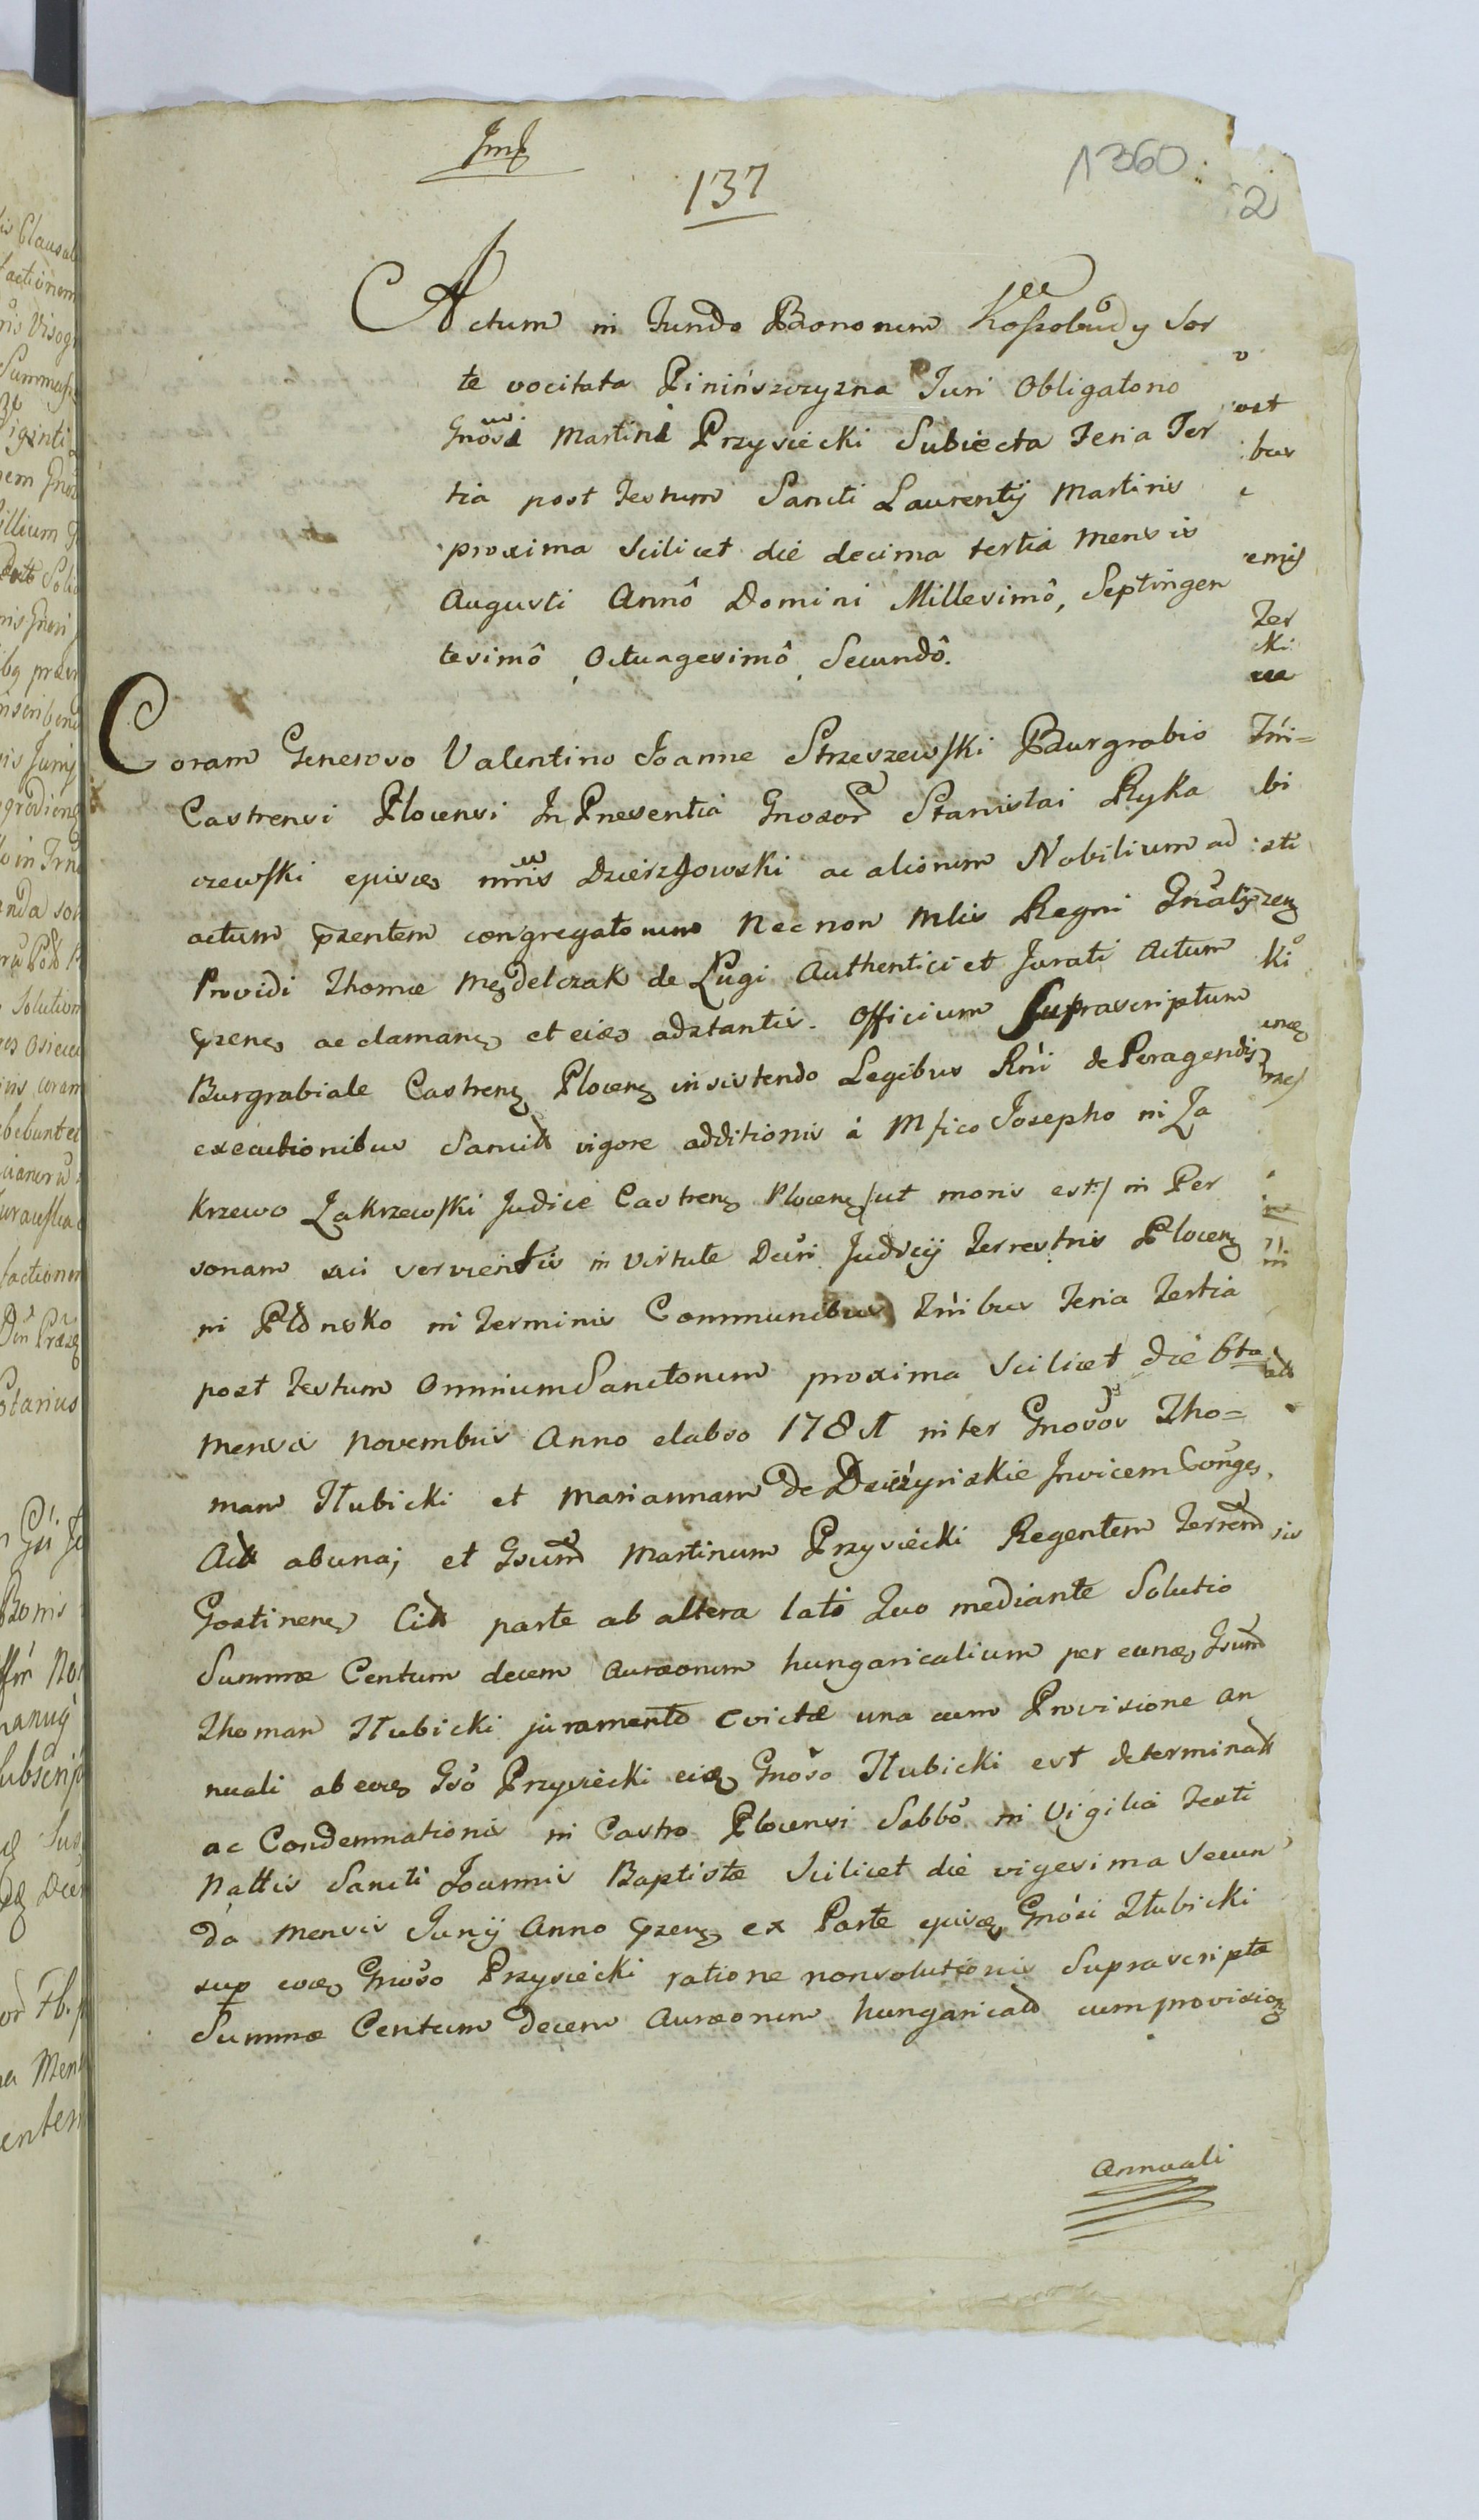 Imp
137
1360
2
Actum in Fundo Bonorum Kossobudy Sor
te vocitata Pinińszczyzna Juri Obligatorio
Gnosi Martini Przysiecki Subiecta Feria Ter
tia post Festum Sancti Laurentij Martiris
proxima Scilicet die decima tertia Mensis
Augusti Annô Domini Millesimô, Septingen
tesimô, Octuagesimô, Secundô.
Coram Generoso Valentino Joanne Strzeszewski Burgrabio
Castrensi Plocensi In Presentia Gnosor Stanislai Ryka
czewski eiusq mnis Dzierzgowski ac aliorum Nobilium ad
actum pzentem congregatorum Nec non Mlis Regni Gnalis
Providi Thomæ Męzdelczak de Lugi Authentici et Jurati Actum
pzenq ac clamanq et eidq adstantis. Officium Suprascriptum
Burgrabiale Castrenq Plocenq insistendo Legibus Rni de Peragendis
executionibus Sancitt vigore additionis à Mfico Josepho in Za
krzewo Zakrzewski Judice Castrenq Plocenq /ut moris est:/ in Per
sonam sui servientis in Virtute Decri Judicij Terrestris Plocenq
in Płonsko in Terminis Communibus Trnibus Feria Tertia
post Festum Omnium Sanctorum proxima Scilicet die 6ta
Mensis Novembris Anno elabso 1781 inter Gnosos Tho=
mam Hubicki et Mariannam de Dzieżynskie Invicem Conges,
Actt ab una; et Gsum Martinum Przysiecki Regentem Terrem
Gostinenq Citt parte ab altera lato Quo mediante Solutio
Summæ Centum decem Aureorum hungaricalium per eundq Gsum
Thomam Hubicki juramento Evictæ una cum Provisione an
nuali ab eodq Gso Przysiecki eidq Gnoso Hubicki est determinatt
ac Condemnationis in Castro Plocensi Sabbo in Vigilia Festi
Nattis Sancti Joannis Baptistæ Scilicet die vigesima Secun
da Mensis Junij Anno pzenq ex Parte eiusdq Gnosi Hubicki
sup eodq Gnoso Przysiecki ratione nonsolutionis Suprascriptæ
Summæ Centum Decem Aureorum hungaricall cum provisioq
Annuali